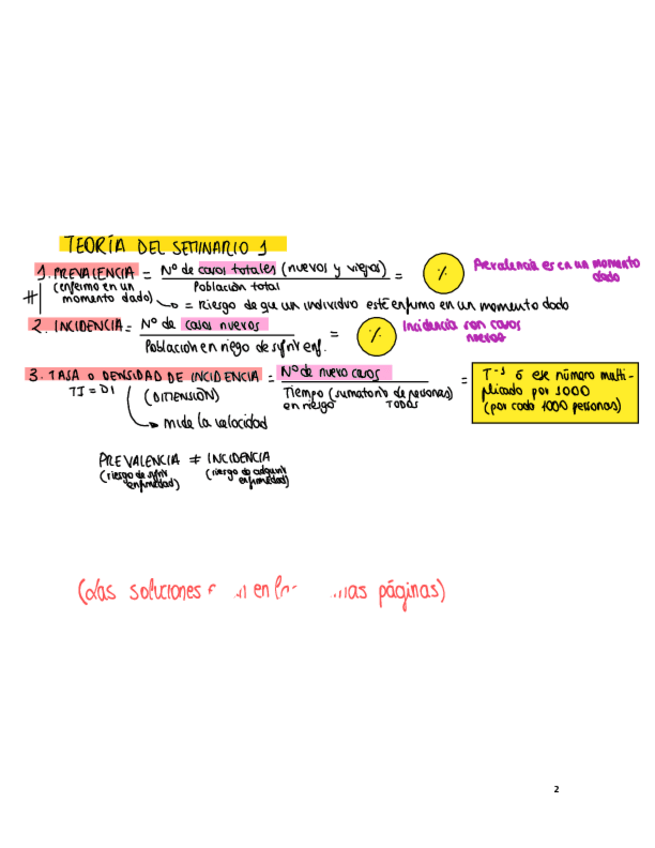 TEORÍA DEL SEMINARIO 1
1. PREVALENCIA = Nº de casos totales (nuevos y viejos) / Población total = % Prevalencia es en un momento dado
(enfermo en un momento dado) = Riesgo de que un individuo esté enfermo en un momento dado
≠
2. INCIDENCIA = Nº de casos nuevos / Población en riego de sufrir enf. = % Incidencia son casos nuevos
3. TASA o DENSIDAD DE INCIDENCIA = Nº de nuevo casos / Tiempo (sumatorio de personas) en riesgo TODAS = T⁻¹ ó ese número multi-
plicado por 1000
(por cada 1000 personas)
TI = DI (DIMENSIÓN)
mide la velocidad
PREVALENCIA ≠ INCIDENCIA
(riesgo de sufrir enfermedad) (riesgo de adquirir enfermedad)
(Las soluciones en páginas)
2